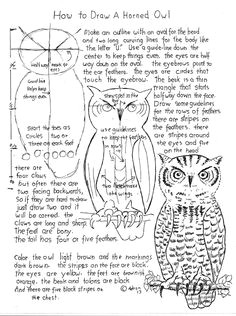 How to Draw A Horned Owl
Make an outline with an oval for the head
and two long curving lines for the body like
the letter "U". Use a guide-line down the
center to keep things even. The eyes are half
way down on the oval. The eyebrows point to
the ear. The eyes are circles that
touch the eyebrow. The beak is a thin
triangle that starts
halfway down the face.
Draw some guidelines
for the rows of feathers
there are stripes on
the feathers. there
are stripes around
the eyes and five
on the head
Guide line
helps keep
things even
Start the toes as
circles two or
three on each foot
use guidelines
to keep feathers
even
there are
four claws
but often there are
two facing backwards,
so if they are hard to draw
just draw two and it
will be correct. the
claws are long and sharp.
The feet are bony.
The tail has four or five feathers.
Color the owl light brown and the markings
dark brown. the stripes on the face are black.
The eyes are yellow. the feet are brownish
orange. the beak and talons are black
And there are five black stripes on
the chest.